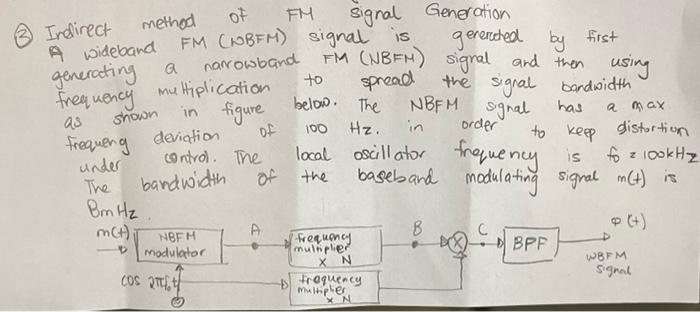 ③ Indirect method of FM signal Generation
A wideband FM (WBFM) signal is generated by first
generating a narrowband FM (NBFM) signal and then using
frequency multiplication to spread the signal bandwidth
as shown in figure below. The NBFM signal has a max.
frequency deviation of 100 Hz. in order to keep distortion
under control. The local oscillator frequency is f0 = 100kHz
The bandwidth of the baseband modulating signal m(t) is
Bm Hz.
m(t) NBFM modulator A frequency multiplier x N B X C BPF φ(t)
WBFM signal
cos 2πf0t frequency multiplier x N